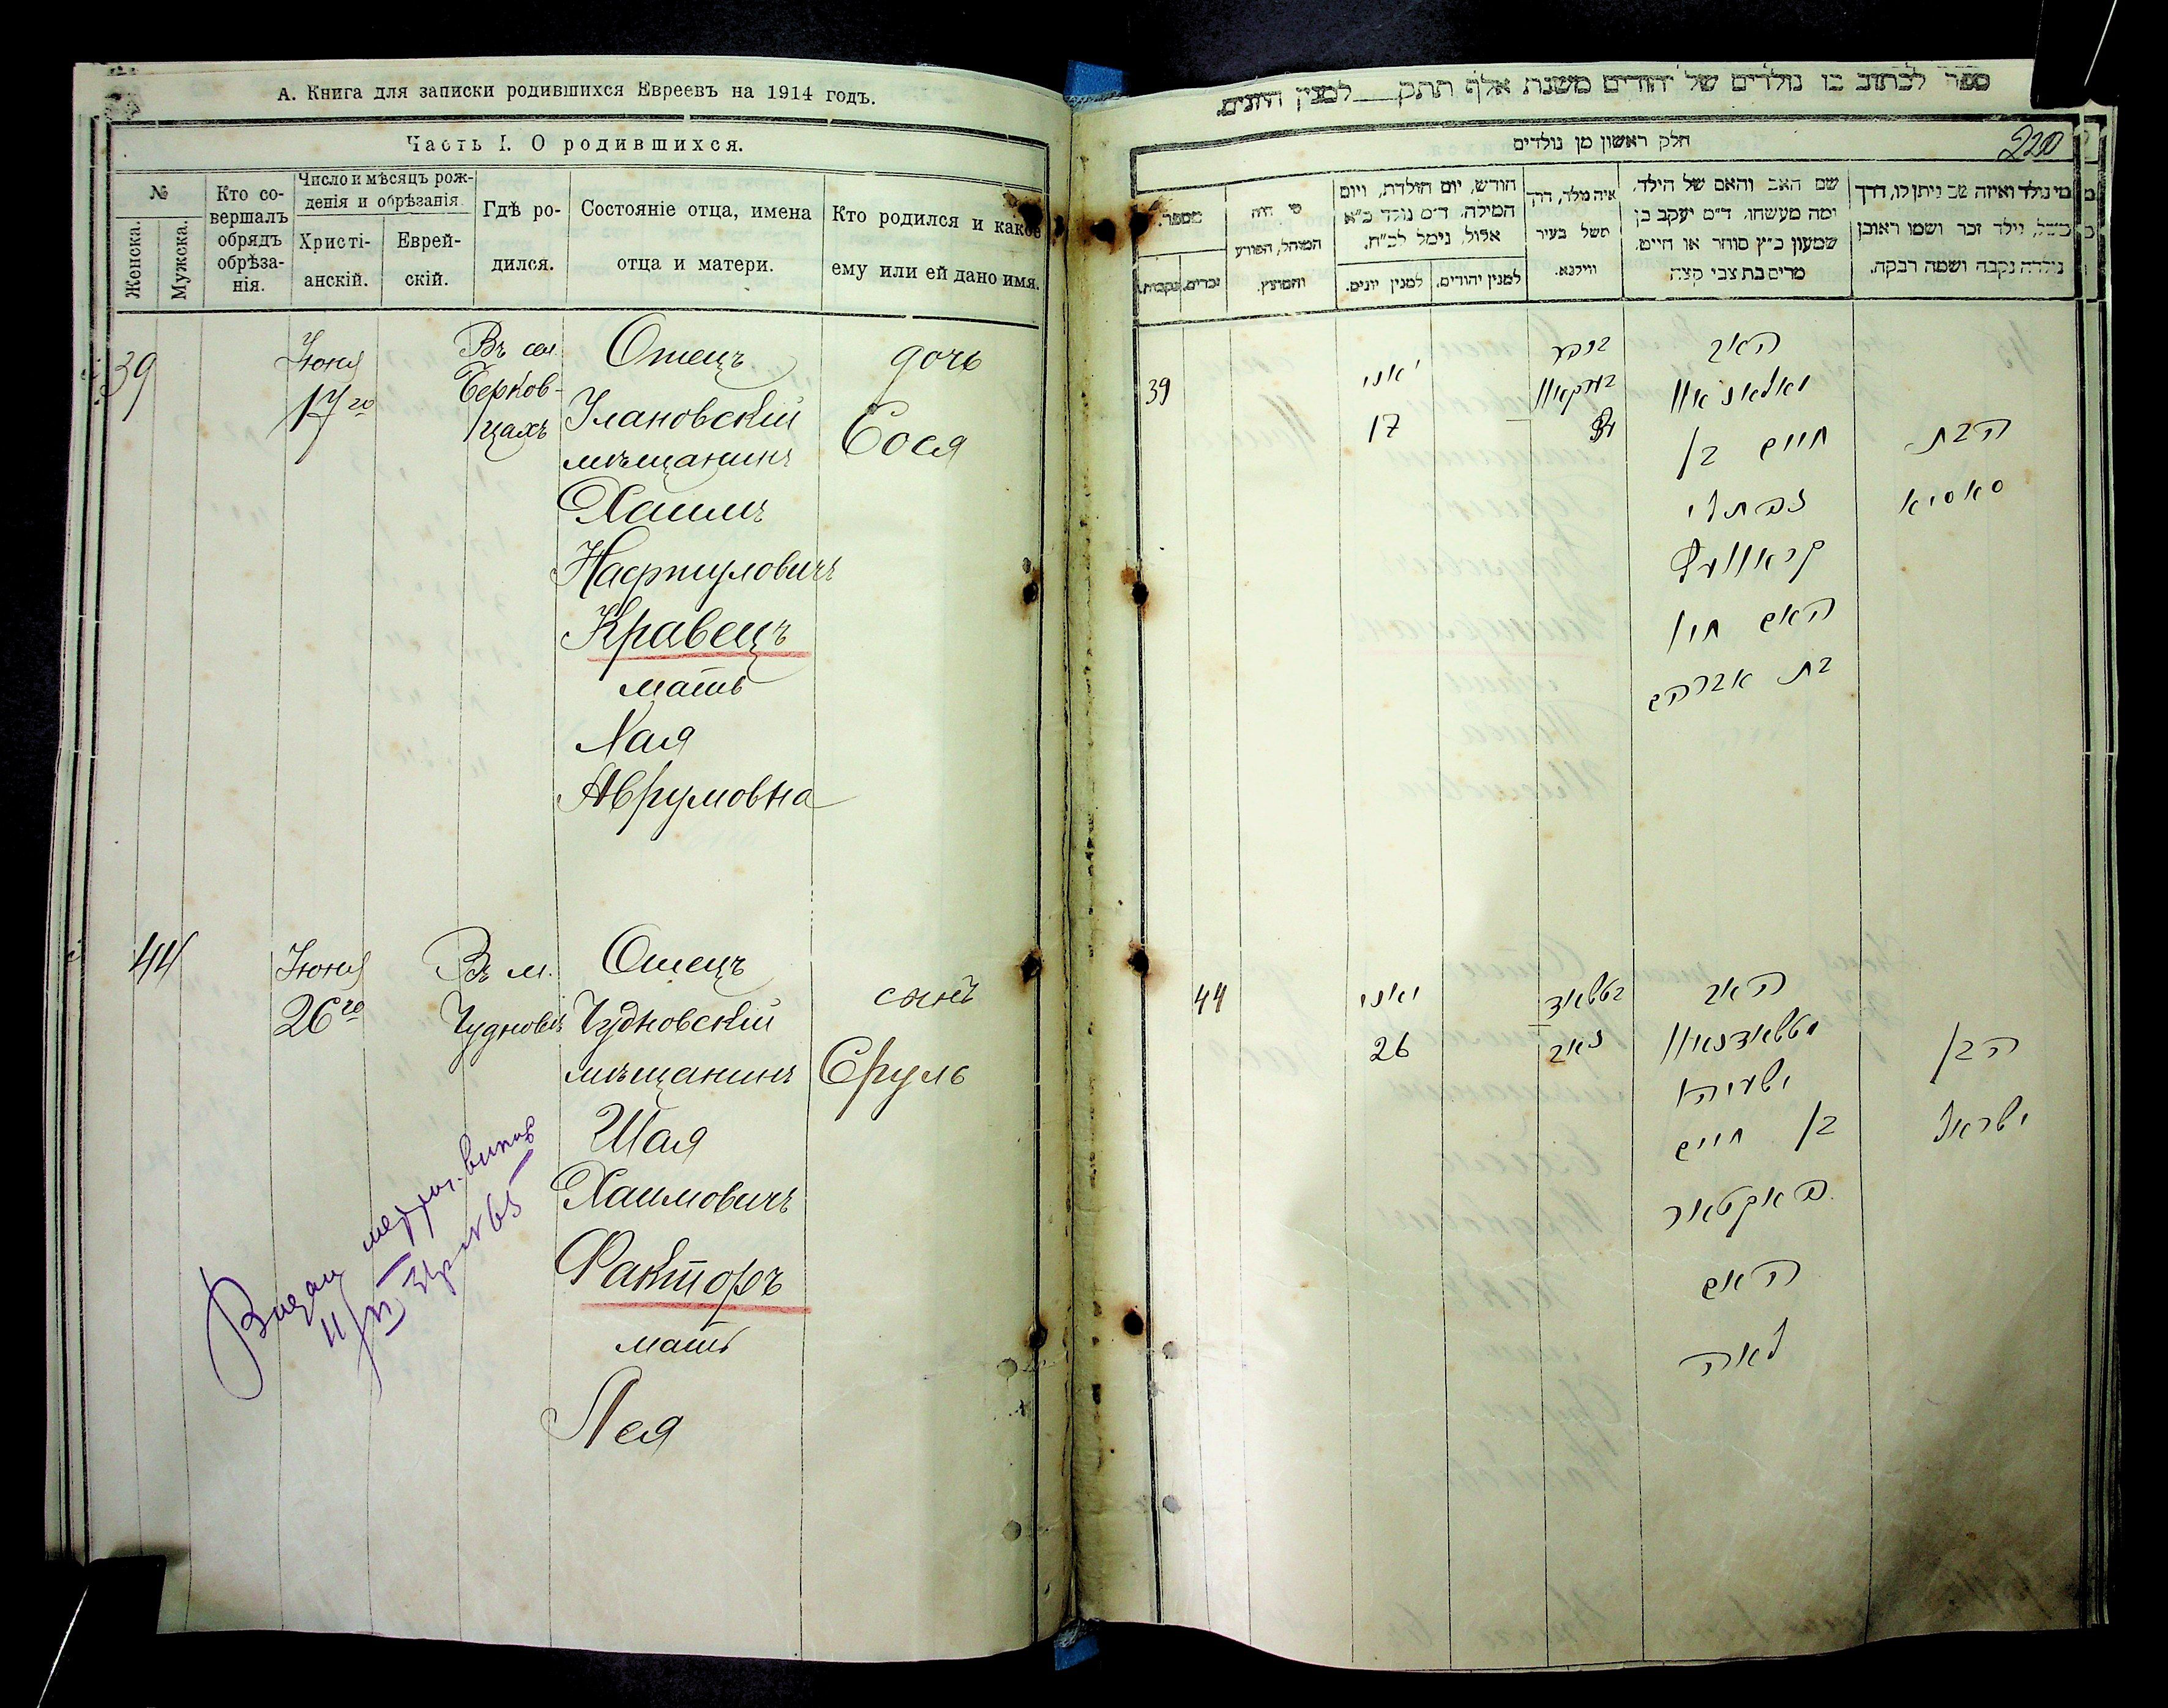 А. Книга для записки родившихся Евреевъ на 1914 годъ.
Часть I. О родившихся.
№
Женска.
Мужска.
Кто со-
вершалъ
обрядъ
обрѣза-
нія.
Число и мѣсяцъ рож-
денія и обрѣзанія.
Христі-
анскій.
Еврей-
скій.
Гдѣ ро-
дился.
Состояніе отца, имена
отца и матери.
Кто родился и какое
ему или ей дано имя.
39
Іюня
17го
Въ сел.
Берков-
цахъ
Отецъ
Улановскій
мѣщанинъ
Хаимъ
Нафтуловичъ
Кравецъ
мать
Хая
Аврумовна
дочь
Сося
44
Іюня
26го
Въ м.
Чудновѣ
Отецъ
Чудновскій
мѣщанинъ
Шая
Хаимовичъ
Факторъ
мать
Лея
сынъ
Сруль
ספר לכתוב בו נולדים של יהודים משנת אלף תתק למנין היונים.
220
חלק ראשון מן נולדים
מספר.
נקבות.
זכרים.
מי היה
המוהל, הפורע
והמוצץ.
חודש, יום הולדת, ויום
המילה. ד״מ נולד כ״א
אלול, נימל לכ״ח.
למנין יונים.
למנין יהודים.
איה נולד, דרך
משל בעיר
ווילנא.
שם האב והאם של הילד,
ומה מעשהו. ד״מ יעקב בן
שמעון כ״ץ סוחר או חייט.
מרים בת צבי קצה
מי נולד ואיזה שם ניתן לו, דרך
משל, נולד זכר ושמו ראובן
נולדה נקבה ושמה רבקה.
39
יאני
17
האב
חיים בן
נפתלי
קראוועץ
האם חי׳
בת אברהם
הבת
סאסיא
44
יאני
26
האב
ישעיה
בן חיים
פאקטאר
האם
לאה
הבן
ישראל